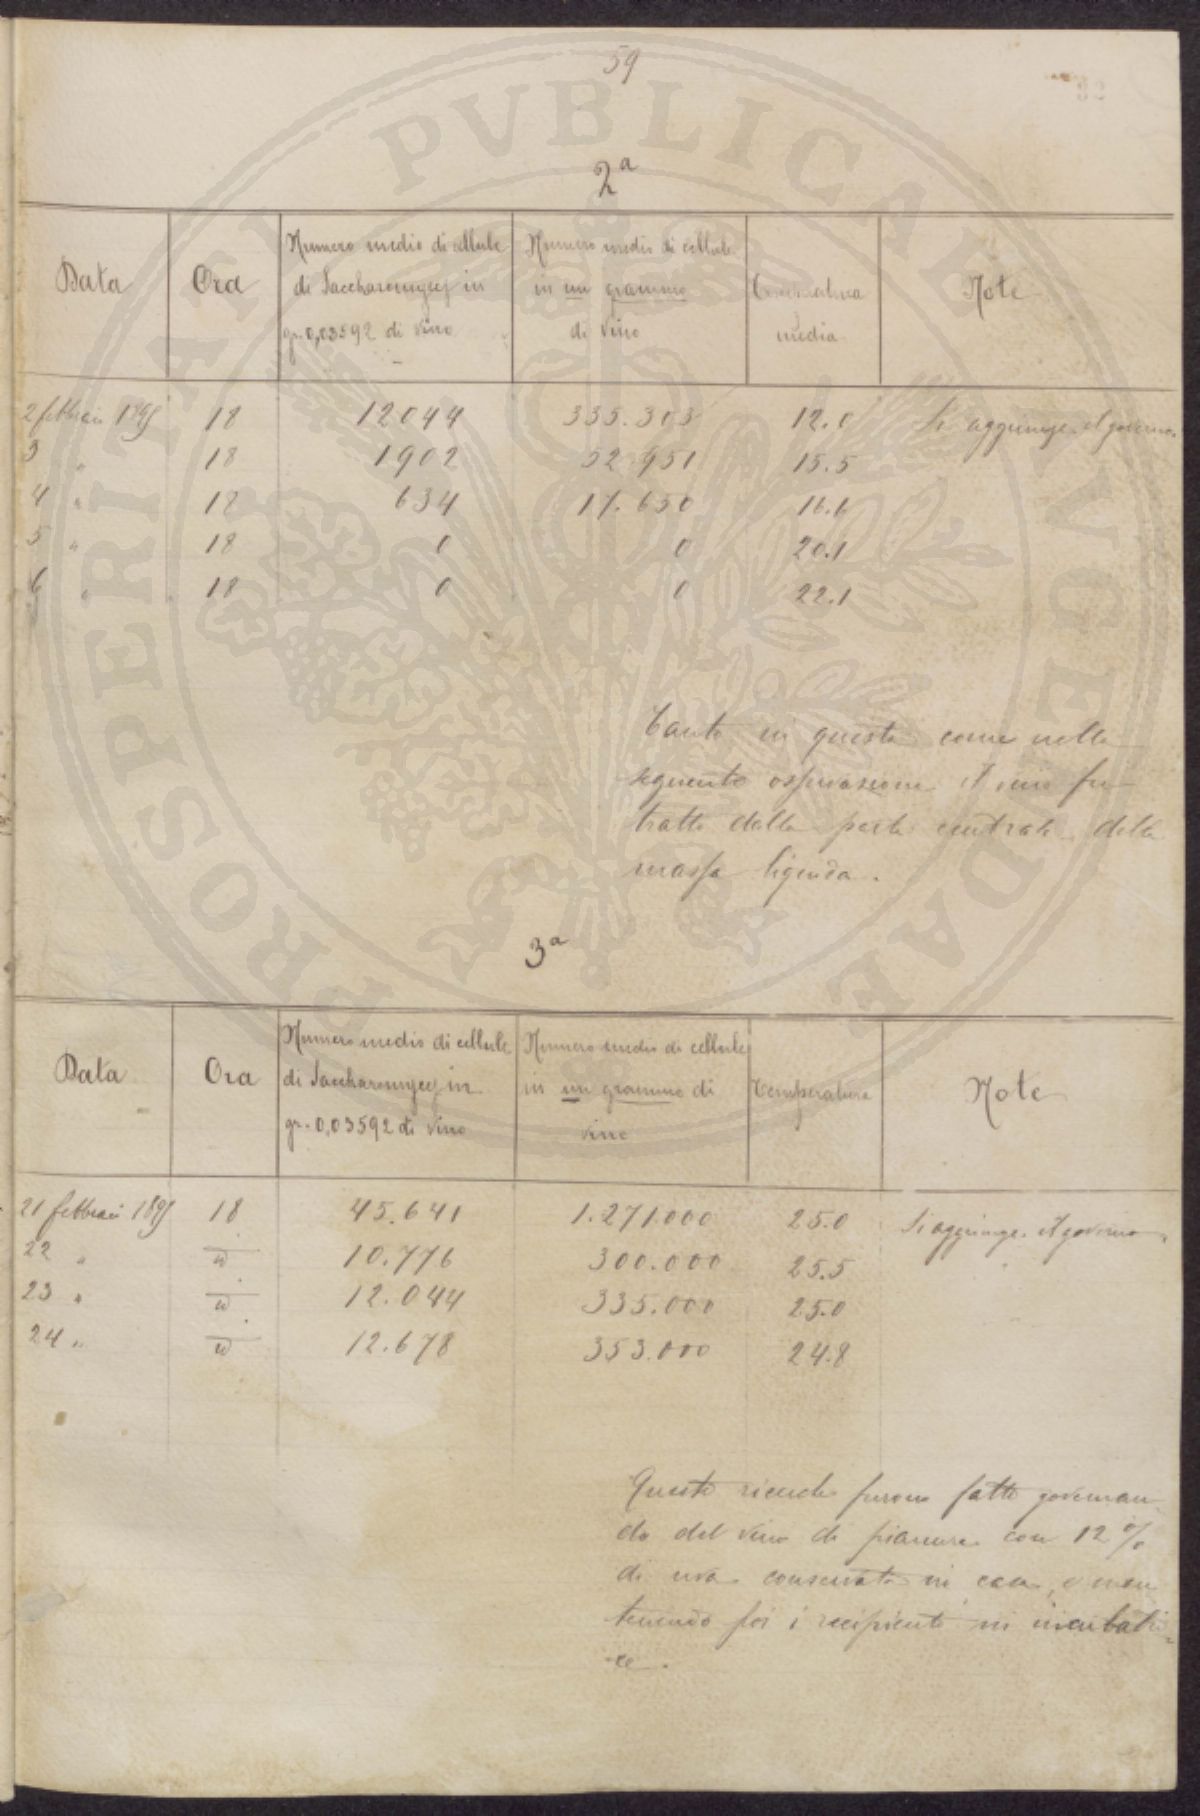 59
2ª
Data | Ora | Numero medio di cellule di Saccharomyces in gr. 0,03592 di vino | Numero medio di cellule in un grammo di vino | Temperatura media | Note
2 febbraio 1895 | 18 | 12044 | 335.303 | 12.0 | Si aggiunge il governo.
3 " | 18 | 1902 | 52.951 | 15.5
4 " | 12 | 634 | 17.650 | 16.6
5 " | 18 | 0 | 0 | 20.1
6 " | 18 | 0 | 0 | 22.1
Tanto in questa come nella
seguente osservazione il vino fu
tratto dalla parte centrale della
massa liquida.
3ª
Data | Ora | Numero medio di cellule di Saccharomyces in gr. 0,03592 di vino | Numero medio di cellule in un grammo di vino | Temperatura | Note
21 febbraio 1895 | 18 | 45.641 | 1.271.000 | 25.0 | Si aggiunge il governo.
22 " | id. | 10.776 | 300.000 | 25.5
23 " | id. | 12.044 | 335.000 | 25.0
24 " | id. | 12.678 | 353.000 | 24.8
Queste ricerche furono fatte governan-
do del vino di pianura con 12 %
di uva conservata in casa, e man
tenendo poi i recipienti in incubatri=
ce.
PROSPERITATI PVBLICAE AVGENDAE